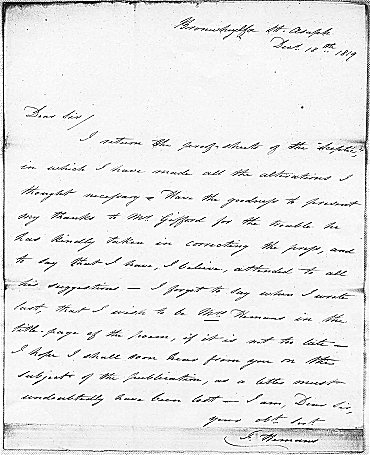 Bronwhylfa St. Asaph
Dect. 18th 1819
Dear Sir/
I return the proof-sheets of the Skeptic,
in which I have made all the alterations I
thought necessary & Have the goodness to present
my thanks to Mr. Gifford for the trouble he
has kindly taken in correcting the press, and
to say that I have, I believe, attended to all
his suggestions — I forgot to say when I wrote
last, that I wish to be Mrs Hemans in the
title page of the poem, if it is not to late —
I hope I shall soon hear from you on the
subject of the publication, as a letter must
undoubtedly have been lost — I am, Dear Sir,
your obt. Svt
F. Hemans